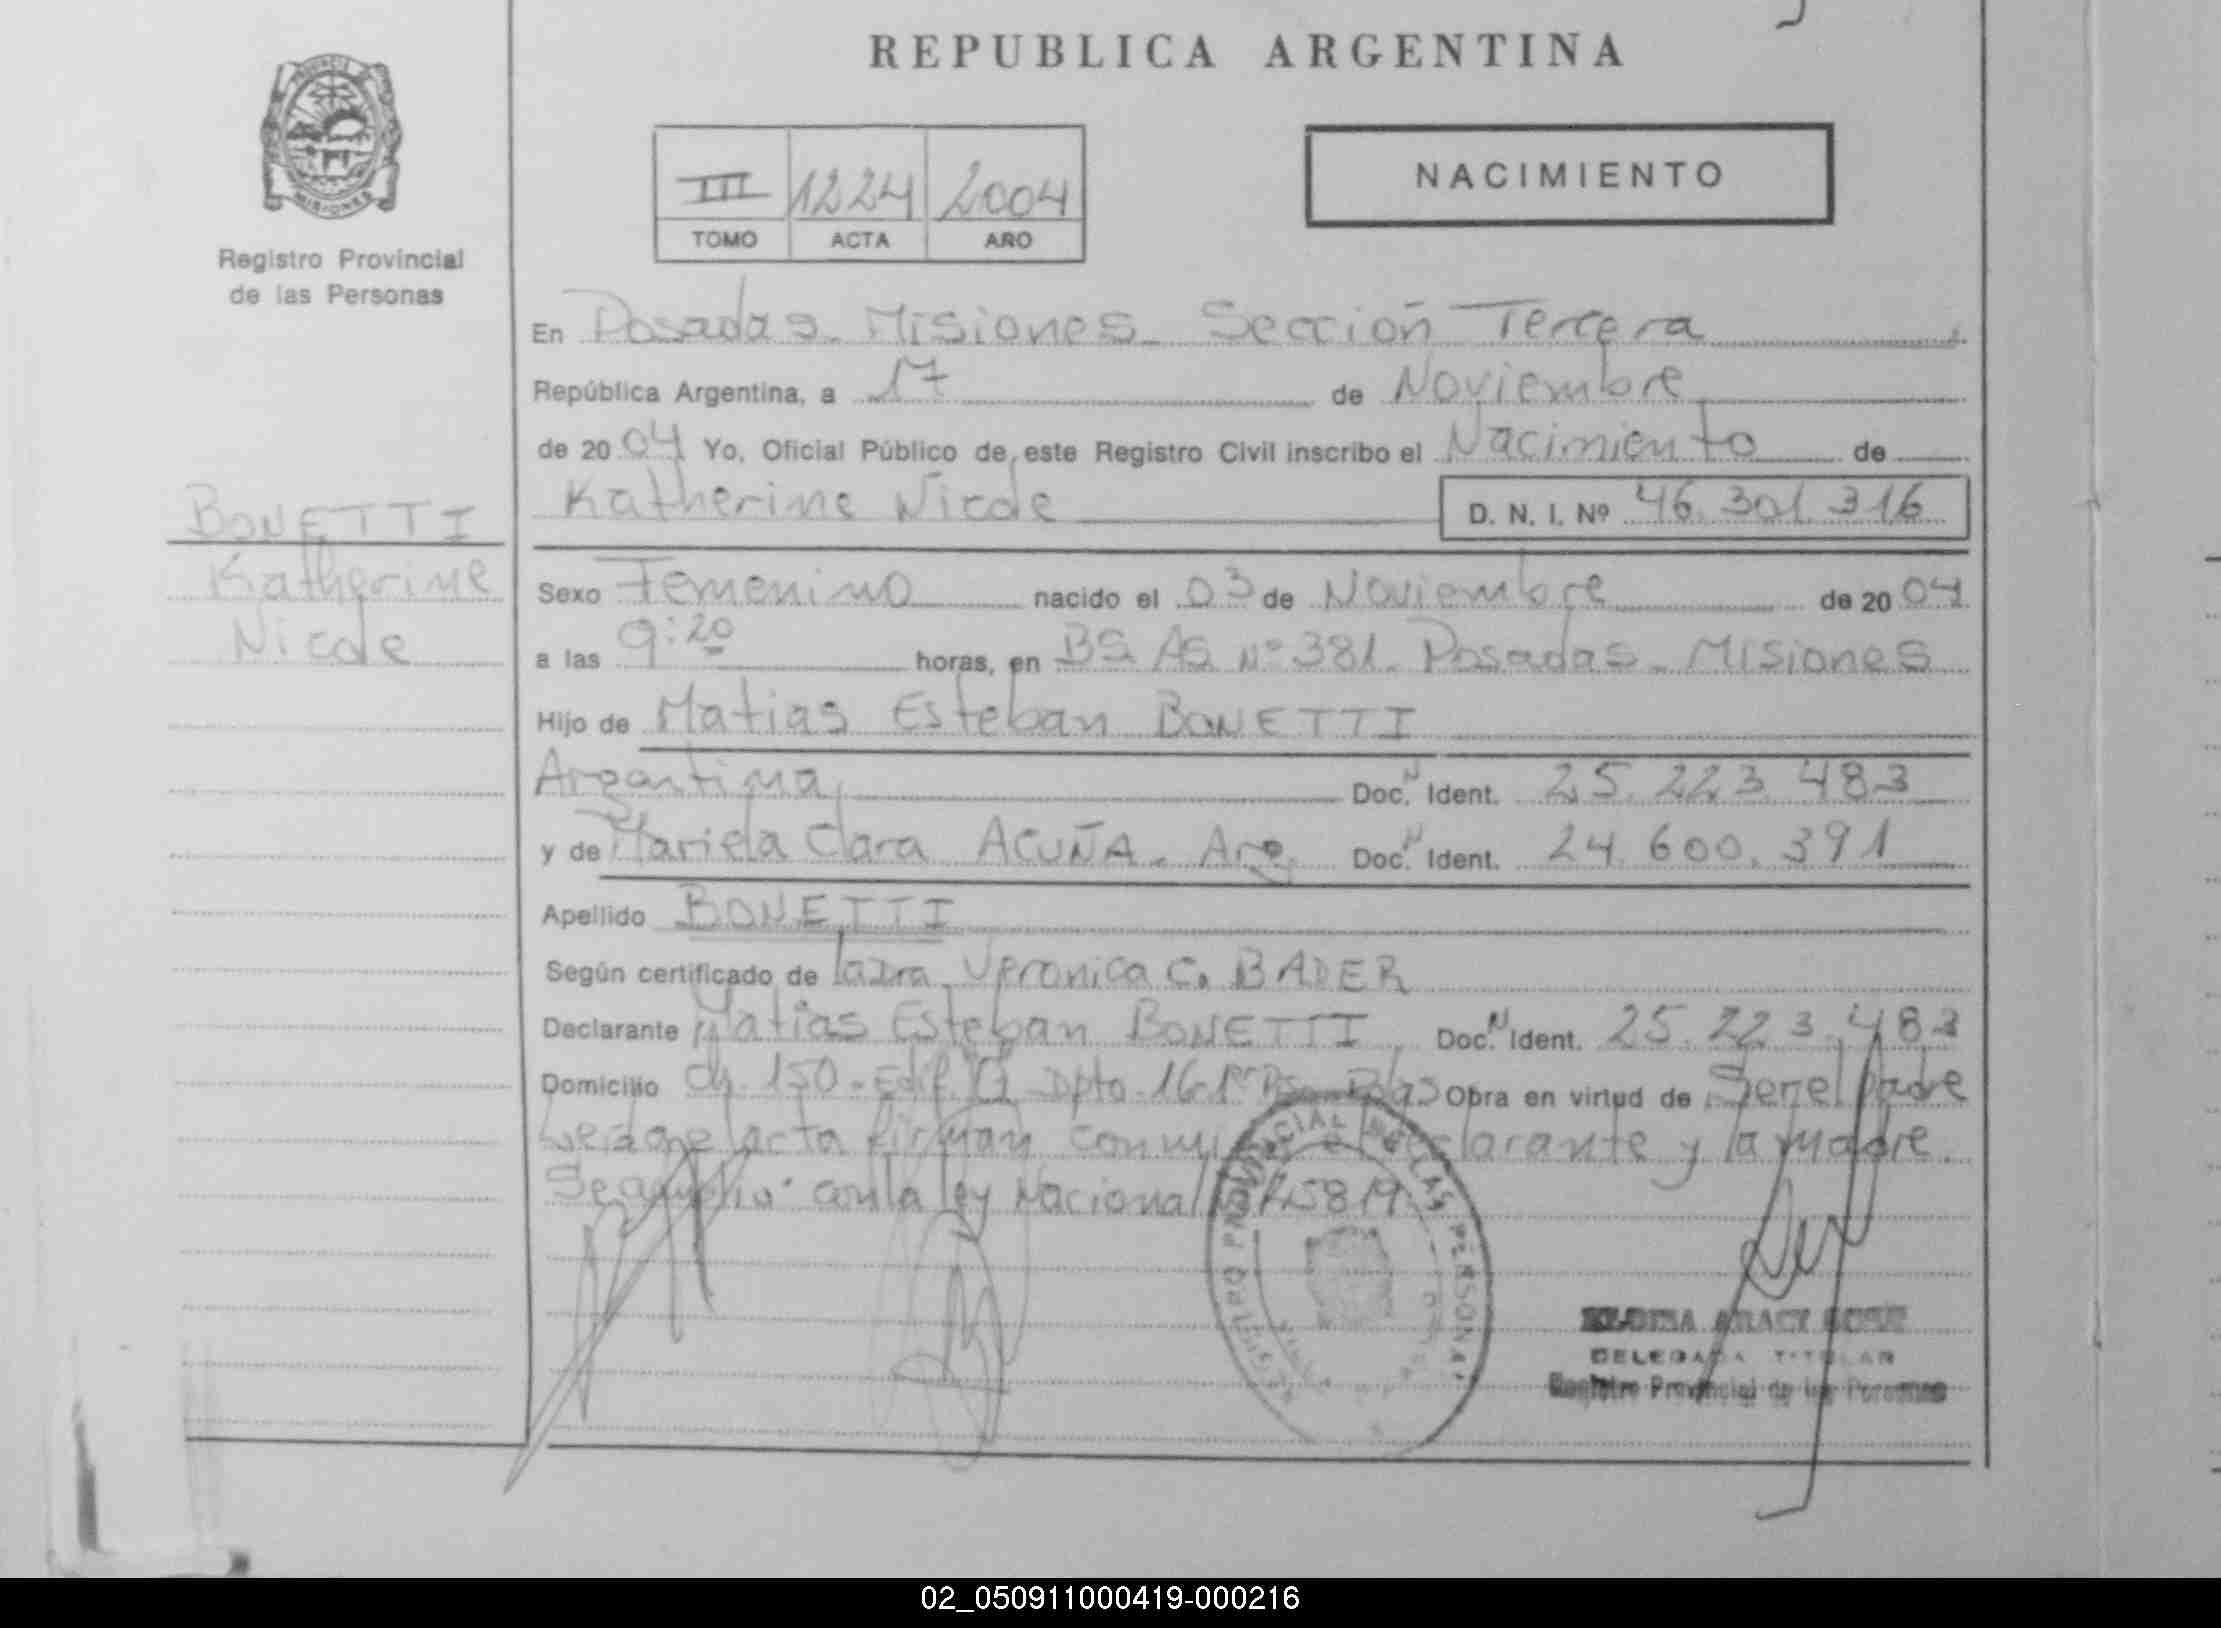 REPUBLICA ARGENTINA
PROVINCIA DE
MISIONES
Registro Provincial
de las Personas
III 1224 2004
TOMO ACTA AÑO
NACIMIENTO
En Posadas. Misiones. Sección Tercera
República Argentina, a 17 de Noviembre
de 2004 Yo, Oficial Público de este Registro Civil inscribo el Nacimiento de
Katherine Nicole D. N. I. Nº 46.301.316
BONETTI
Katherine
Nicole
Sexo Femenino nacido el 03 de Noviembre de 2004
a las 9:20 horas, en BS AS Nº 381. Posadas. Misiones
Hijo de Matias Esteban BONETTI
Argentina Doc. N Ident. 25.223.483
y de Mariela Clara ACUÑA. Arg. Doc. N Ident. 24.600.391
Apellido BONETTI
Según certificado de la Dra. Veronica C. BADER
Declarante Matias Esteban BONETTI Doc. N Ident. 25.223.483
Domicilio Ch. 150. Edif. Dpto. 16-1er Obra en virtud de Ser el padre
Leida el acta firman conmigo el declarante y la madre.
con la ley Nacional
REGISTRO PROVINCIAL DE LAS PERSONAS
ARACY
DELEGADA TITULAR
Registro Provincial de las Personas
02_050911000419-000216